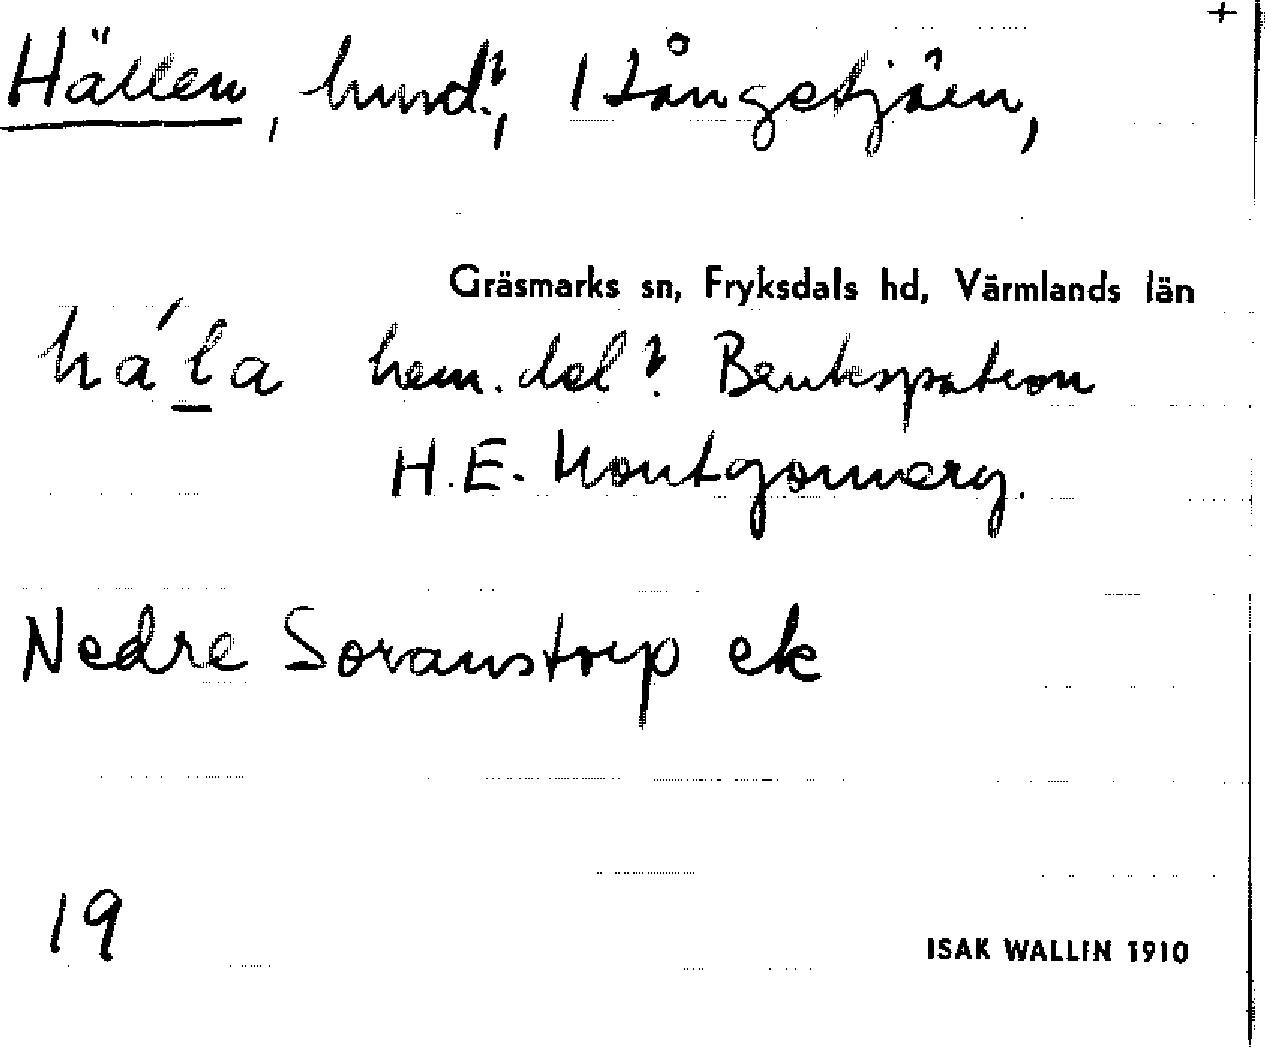 +
Hällen, hmnd?, 1 Långetjäen,
Gräsmarks sn, Fryksdals hd, Värmlands län
há'la hem.del? Brukspatron
H.E. Montgommery.
Nedre Soranstorp ek
19
ISAK WALLIN 1910